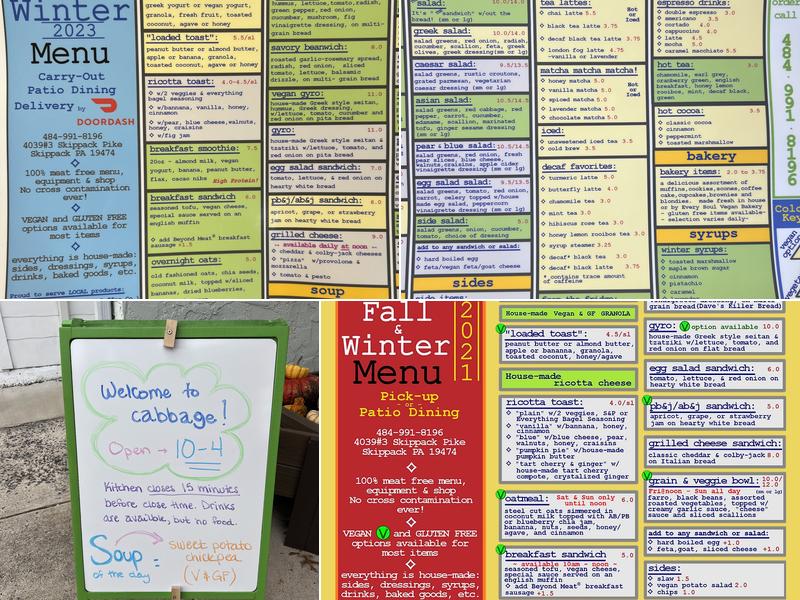 Winter
2023
Menu
Carry-Out
Patio Dining
Delivery by
DOORDASH
484-991-8196
4039#3 Skippack Pike
Skippack PA 19474
100% meat free menu,
equipment & shop
No cross contamination
ever!
VEGAN and GLUTEN FREE
options available for
most items
everything is house-made:
sides, dressings, syrups,
drinks, baked goods, etc.
Proud to serve LOCAL products:
greek yogurt or vegan yogurt,
granola, fresh fruit, toasted
coconut, agave or honey
"loaded toast": 5.5/sl
peanut butter or almond butter,
apple or banana, granola,
toasted coconut, agave or
honey
ricotta toast: 4.0-4.5/sl
w/2 veggies & everything
bagel seasoning
w/banana, vanilla, honey,
cinnamon
w/pear, blue cheese, walnuts,
honey, craisins
w/fig jam
breakfast smoothie: 7.5
20oz - almond milk, vegan
yogurt, banana, peanut butter,
flax, cacao nibs High Protein!
breakfast sandwich 6.0
seasoned tofu, vegan cheese,
special sauce served on an
english muffin
add Beyond Meat® breakfast
sausage +1.5
overnight oats: 5.0
old fashioned oats, chia seeds,
coconut milk, topped w/sliced
bananas, dried blueberries,
hummus, lettuce, tomato, radish,
green pepper, red onion,
cucumber, mushroom, fig
vinaigrette dressing, on multi-
grain bread
savory beanwich: 8.0
roasted garlic-rosemary spread,
radish, red onion, sliced
tomato, lettuce, balsamic
drizzle, on multi- grain bread
vegan gyro: 11.0
house-made Greek style seitan,
hummus, Greek dressing,
w/lettuce, tomato, cucumber and
red onion on pita bread
gyro: 11.0
house-made Greek style seitan &
tzatziki w/lettuce, tomato,
and red onion on pita bread
egg salad sandwich 7.0
tomato, lettuce, & red onion on
hearty white bread
pb&j/ab&j sandwich 6.0
apricot, grape, or strawberry
jam on hearty white bread
grilled cheese: 9.0
-- available daily at noon --
cheddar & colby-jack cheeses
"pizza" w/provolone &
mozzarella
tomato & pesto
soup
salad: 10.0/14.0
It's a "sandwich" w/out the
bread! (sm or lg)
greek salad: 10.0/14.0
salad greens, red onion, radish,
cucumber, scallion, feta, greek
olives, greek dressing(sm or lg)
caesar salad: 9.5/13.5
salad greens, rustic croutons,
grated parmesan, vegetarian
caesar dressing (sm or lg)
asian salad: 10.5/14.5
salad greens, red cabbage, red
pepper, carrots, cucumber,
edamame, scallion, marinated
tofu, ginger sesame dressing
(sm or lg)
pear & blue salad: 10.5/14.5
salad greens, red onion, fresh
pear slices, blue cheese,
walnuts, craisins, apple cider
vinaigrette dressing (sm or lg)
egg salad salad: 9.5/13.5
salad greens, tomato, red onion,
carrot, celery topped w/house
made egg salad, peppercorn
vinaigrette dressing (sm or lg)
side salad: 5.0
salad greens, onion, cucumber,
tomato, choice of dressing
add to any sandwich or salad:
hard boiled egg
feta/vegan feta/goat cheese
sides
side items:
tea lattes:
chai latte 5.5
Hot
or
Iced
black tea latte 3.75
decaf black tea latte 3.75
london fog latte 4.75
-vanilla or lavender
matcha matcha matcha!
honey matcha 5.0
vanilla matcha 5.0
Hot
or
Iced
spiced matcha 5.0
lavender matcha 5.0
chocolate matcha 5.0
iced:
unsweetened iced tea 3.5
cold brew 3.5
decaf favorites:
turmeric latte 5.0
butterfly latte 4.0
chamomile tea 3.0
mint tea 3.0
hibiscus rose tea 3.0
honey lemon rooibos tea 3.0
syrup steamer 3.25
decaf* black tea 3.0
decaf* black latte 3.75
* contains trace amount
of caffeine
espresso drinks:
double espresso 3.0
americano 3.5
cortado 4.0
cappuccino 4.0
latte 4.5
mocha 5.0
caramel macchiato 5.5
hot tea: 3.0
chamomile, earl grey,
cranberry green, english
breakfast, honey lemon
rooibos, mint, decaf black,
green
hot cocoa: 3.5
classic cocoa
cinnamon
peppermint
toasted marshmallow
bakery
bakery items: 2.0-3.75
a delicious assortment of
muffins,cookies,scones,coffee
cake,cupcakes,brownies and
blondies. made fresh in house
or by Every Soul Vegan Bakery
- gluten free items available -
- selection varies daily-
syrups
winter syrups:
toasted marshmallow
maple brown sugar
cinnamon
pistachio
caramel
order
call
484 · 991 · 8196
Color
Key
vegan
Welcome to
cabbage!
Open → 10-4
Kitchen closes 15 minutes
before close time. Drinks
are available, but no food.
Soup
of the day
sweet potato
chickpea
(V & GF)
Fall
&
Winter
2021
Menu
Pick-up
- or -
Patio Dining
484-991-8196
4039#3 Skippack Pike
Skippack PA 19474
100% meat free menu,
equipment & shop
No cross contamination
ever!
VEGAN V and GLUTEN FREE
options available for
most items
everything is house-made:
sides, dressings, syrups,
drinks, baked goods, etc.
House-made Vegan & GF GRANOLA
V
"loaded toast": 4.5/sl
peanut butter or almond butter,
apple or banana, granola,
toasted coconut, honey/agave
House-made
ricotta cheese
ricotta toast: 4.0/sl
"plain" w/2 veggies, S&P or
Everything Bagel Seasoning
"vanilla" w/banana, honey,
cinnamon
"blue" w/blue cheese, pear,
walnuts, honey, craisins
"pumpkin pie" w/house-made
pumpkin butter
"tart cherry & ginger" w/
house-made tart cherry
compote, crystalized ginger
V
oatmeal: Sat & Sun only
until noon 6.0
steel cut oats simmered in
coconut milk topped with AB/PB
or blueberry chia jam,
banana, nuts, seeds, honey/
agave, and cinnamon
V
breakfast sandwich 5.0
~ available 10am - noon ~
seasoned tofu, vegan cheese,
special sauce served on an
english muffin
add Beyond Meat® breakfast
sausage +1.5
bread(Dave's Killer Bread)
gyro: V option available 10.0
house-made Greek style seitan &
tzatziki w/lettuce, tomato, and
red onion on flat bread
egg salad sandwich 6.0
tomato, lettuce, and red onion on
hearty white bread
V
pb&j/ab&j sandwich 5.0
apricot, grape, or strawberry
jam on hearty white bread
grilled cheese sandwich:
classic cheddar & colby-jack 8.0
on Italian bread
V
grain & veggie bowl: 10.0/
12.0
Fri@noon - Sun all day (sm or lg)
farro, black beans, assorted
roasted vegetables, topped w/
creamy garlic sauce, "cheese"
sauce and sliced scallions
add to any sandwich or salad:
hard boiled egg +1.0
feta,goat, sliced cheese +1.0
sides:
slaw 1.5
vegan potato salad 2.0
chips 1.0